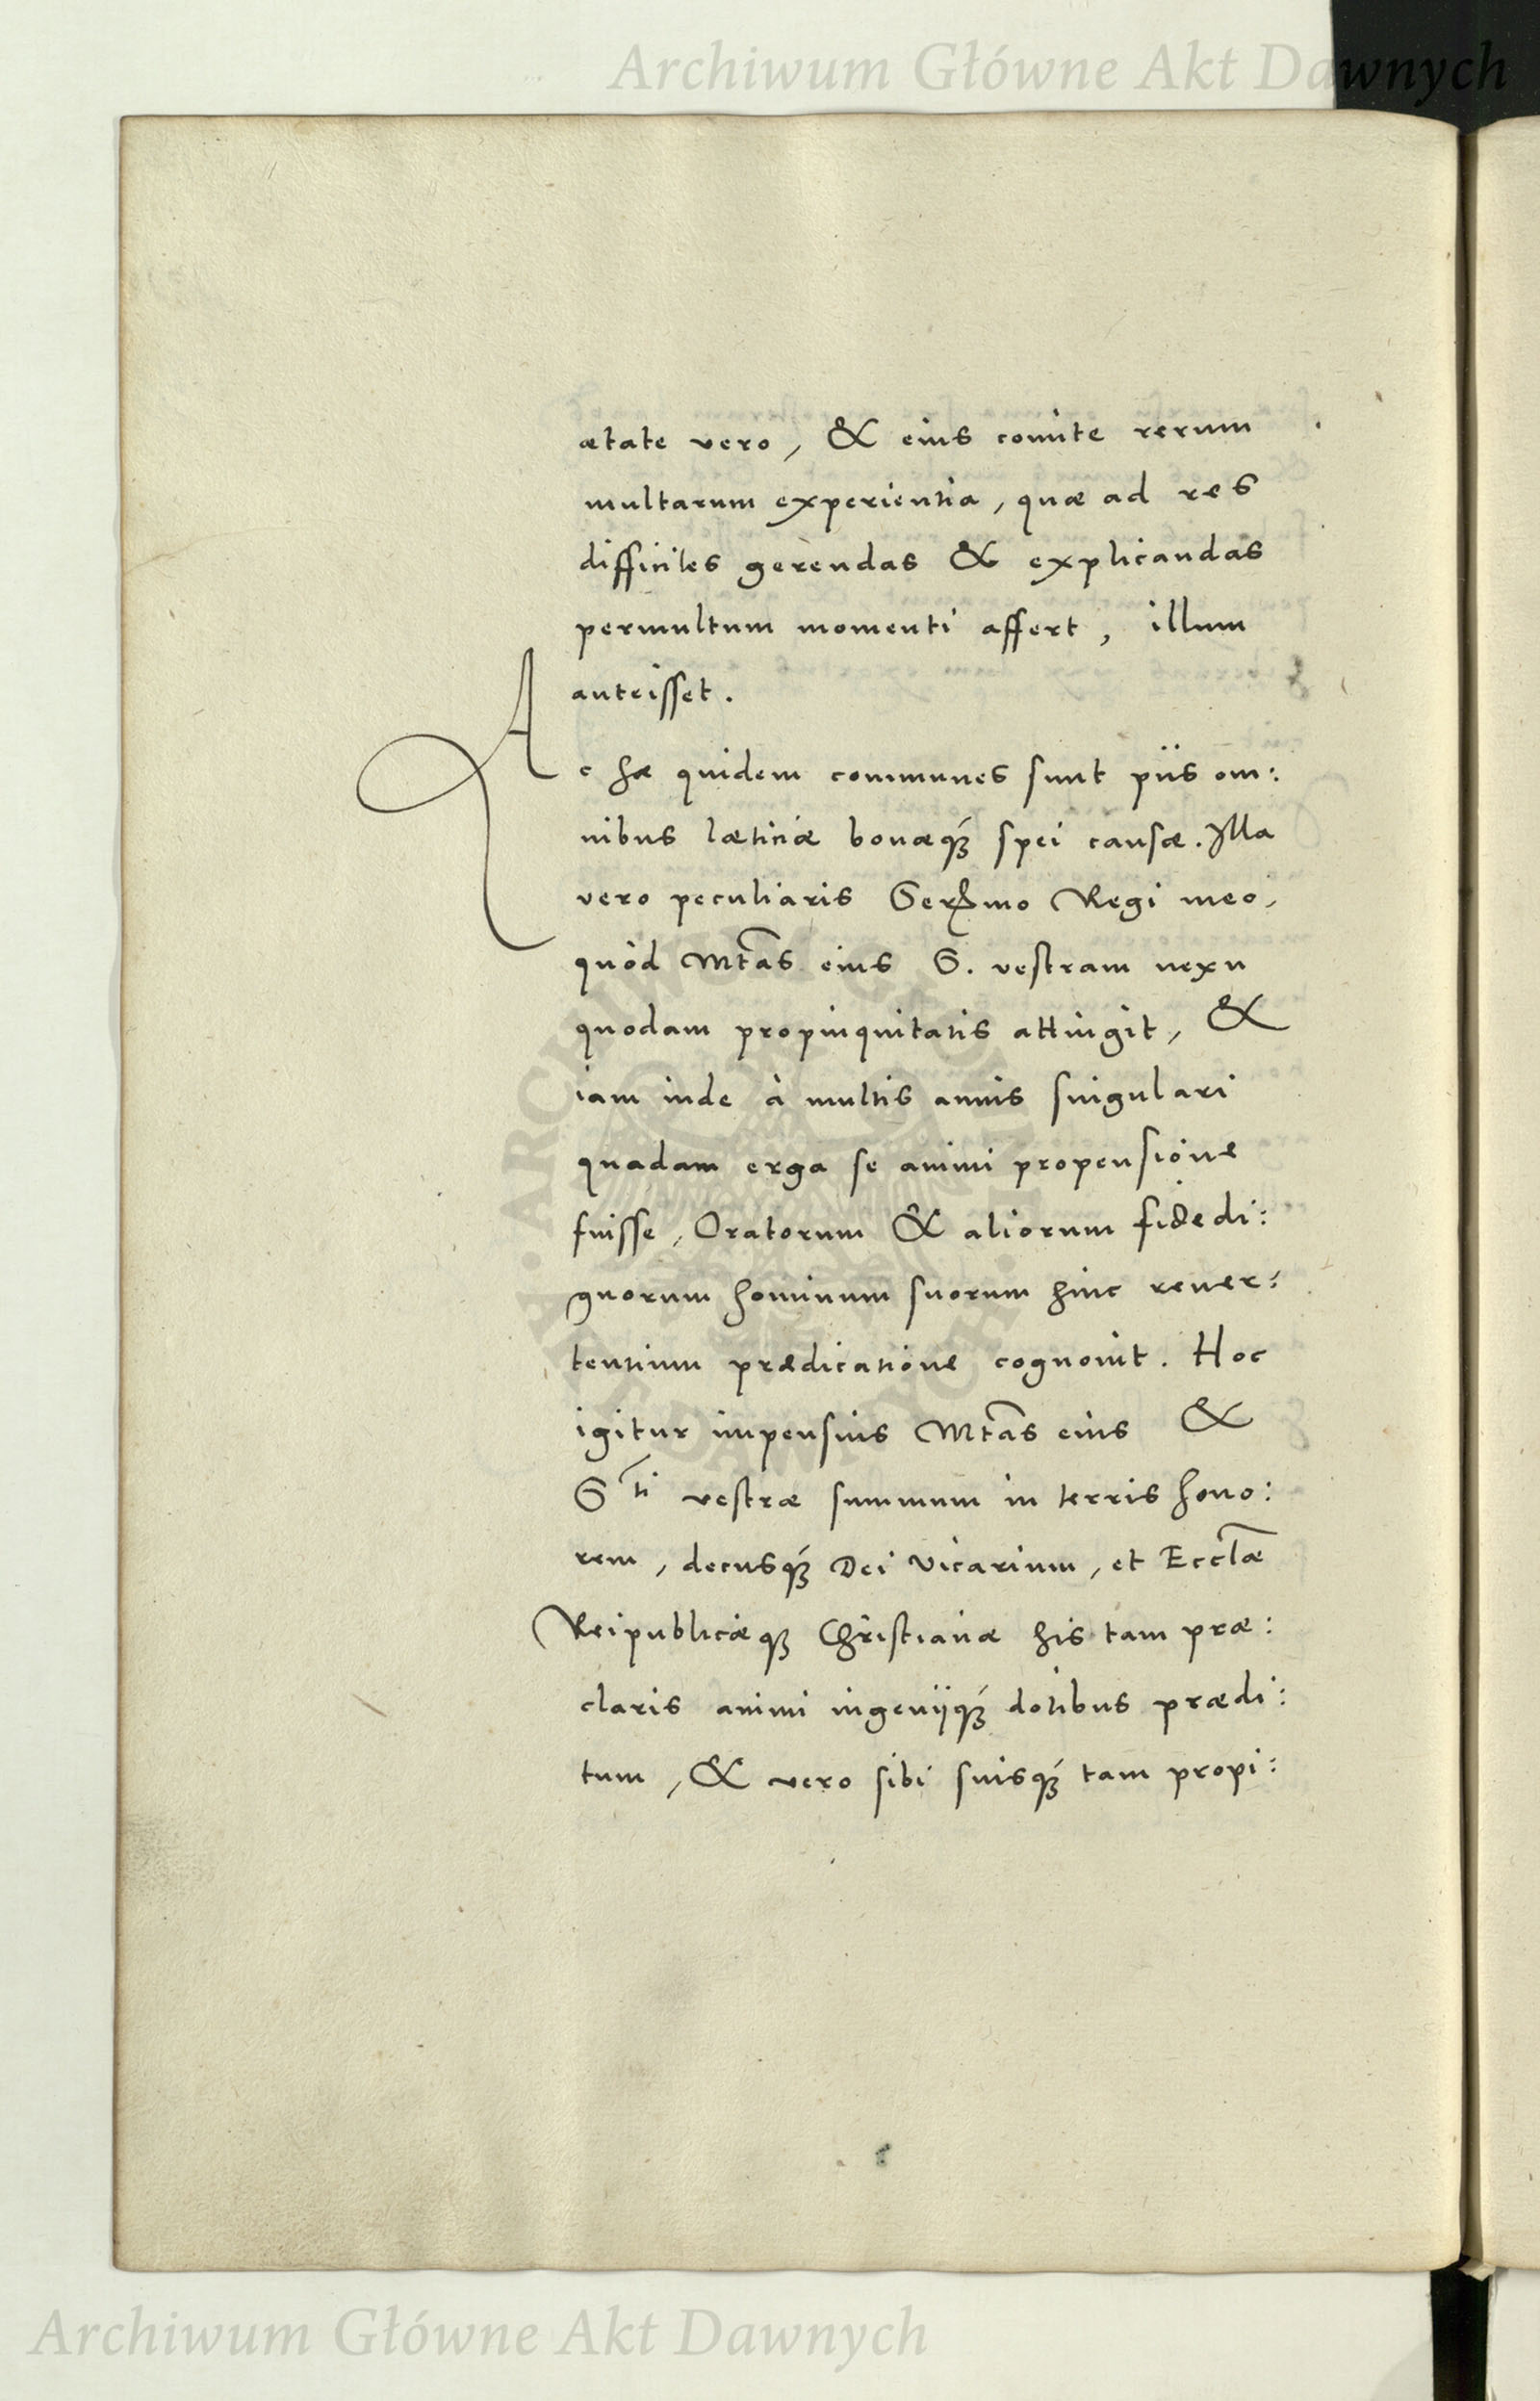 Archiwum Główne Akt Dawnych
ætate vero, & eius comite rerum
multarum experientia, quæ ad res
difficiles gerendas & explicandas
permultum momenti affert, illum
anteisset.
Ac hæ quidem communes sunt piis om:
nibus lætitiæ bonæq́ꝫ spei causæ. Illa
vero peculiaris Serᵐᵒ Regi meo,
quòd Mtãs eius S. vestram nexu
quodam propinquitatis attingit, &
iam inde à multis annis singulari
quadam erga se animi propensione
fuisse, Oratorum & aliorum fide di:
gnorum hominum suorum hinc reuer:
tentium prædicatione cognouit. Hoc
igitur impensius Mtãs eius &
Sᵗⁱ vestræ summum in terris hono:
rem, decusq́ꝫ Dei Vicarium, et Ecclæ̃
Reipublicæqꝫ Christianæ his tam præ:
claris animi ingenijq́ꝫ dotibus prædi:
tum, & vero sibi suisq́ꝫ tam propi:
Archiwum Główne Akt Dawnych